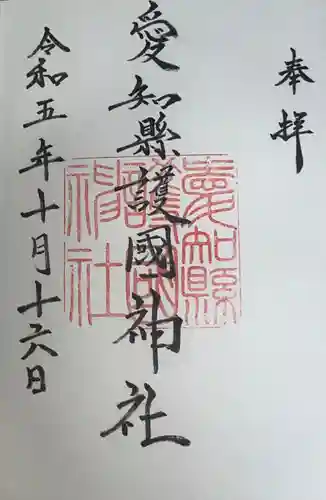 奉拝
愛知縣護國神社
愛知縣護國神社
令和五年十月十六日